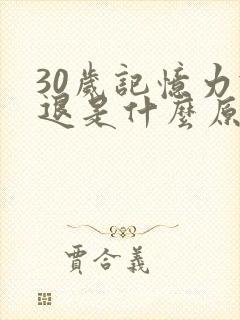 30歲記憶力
退是什麼原
賈合義